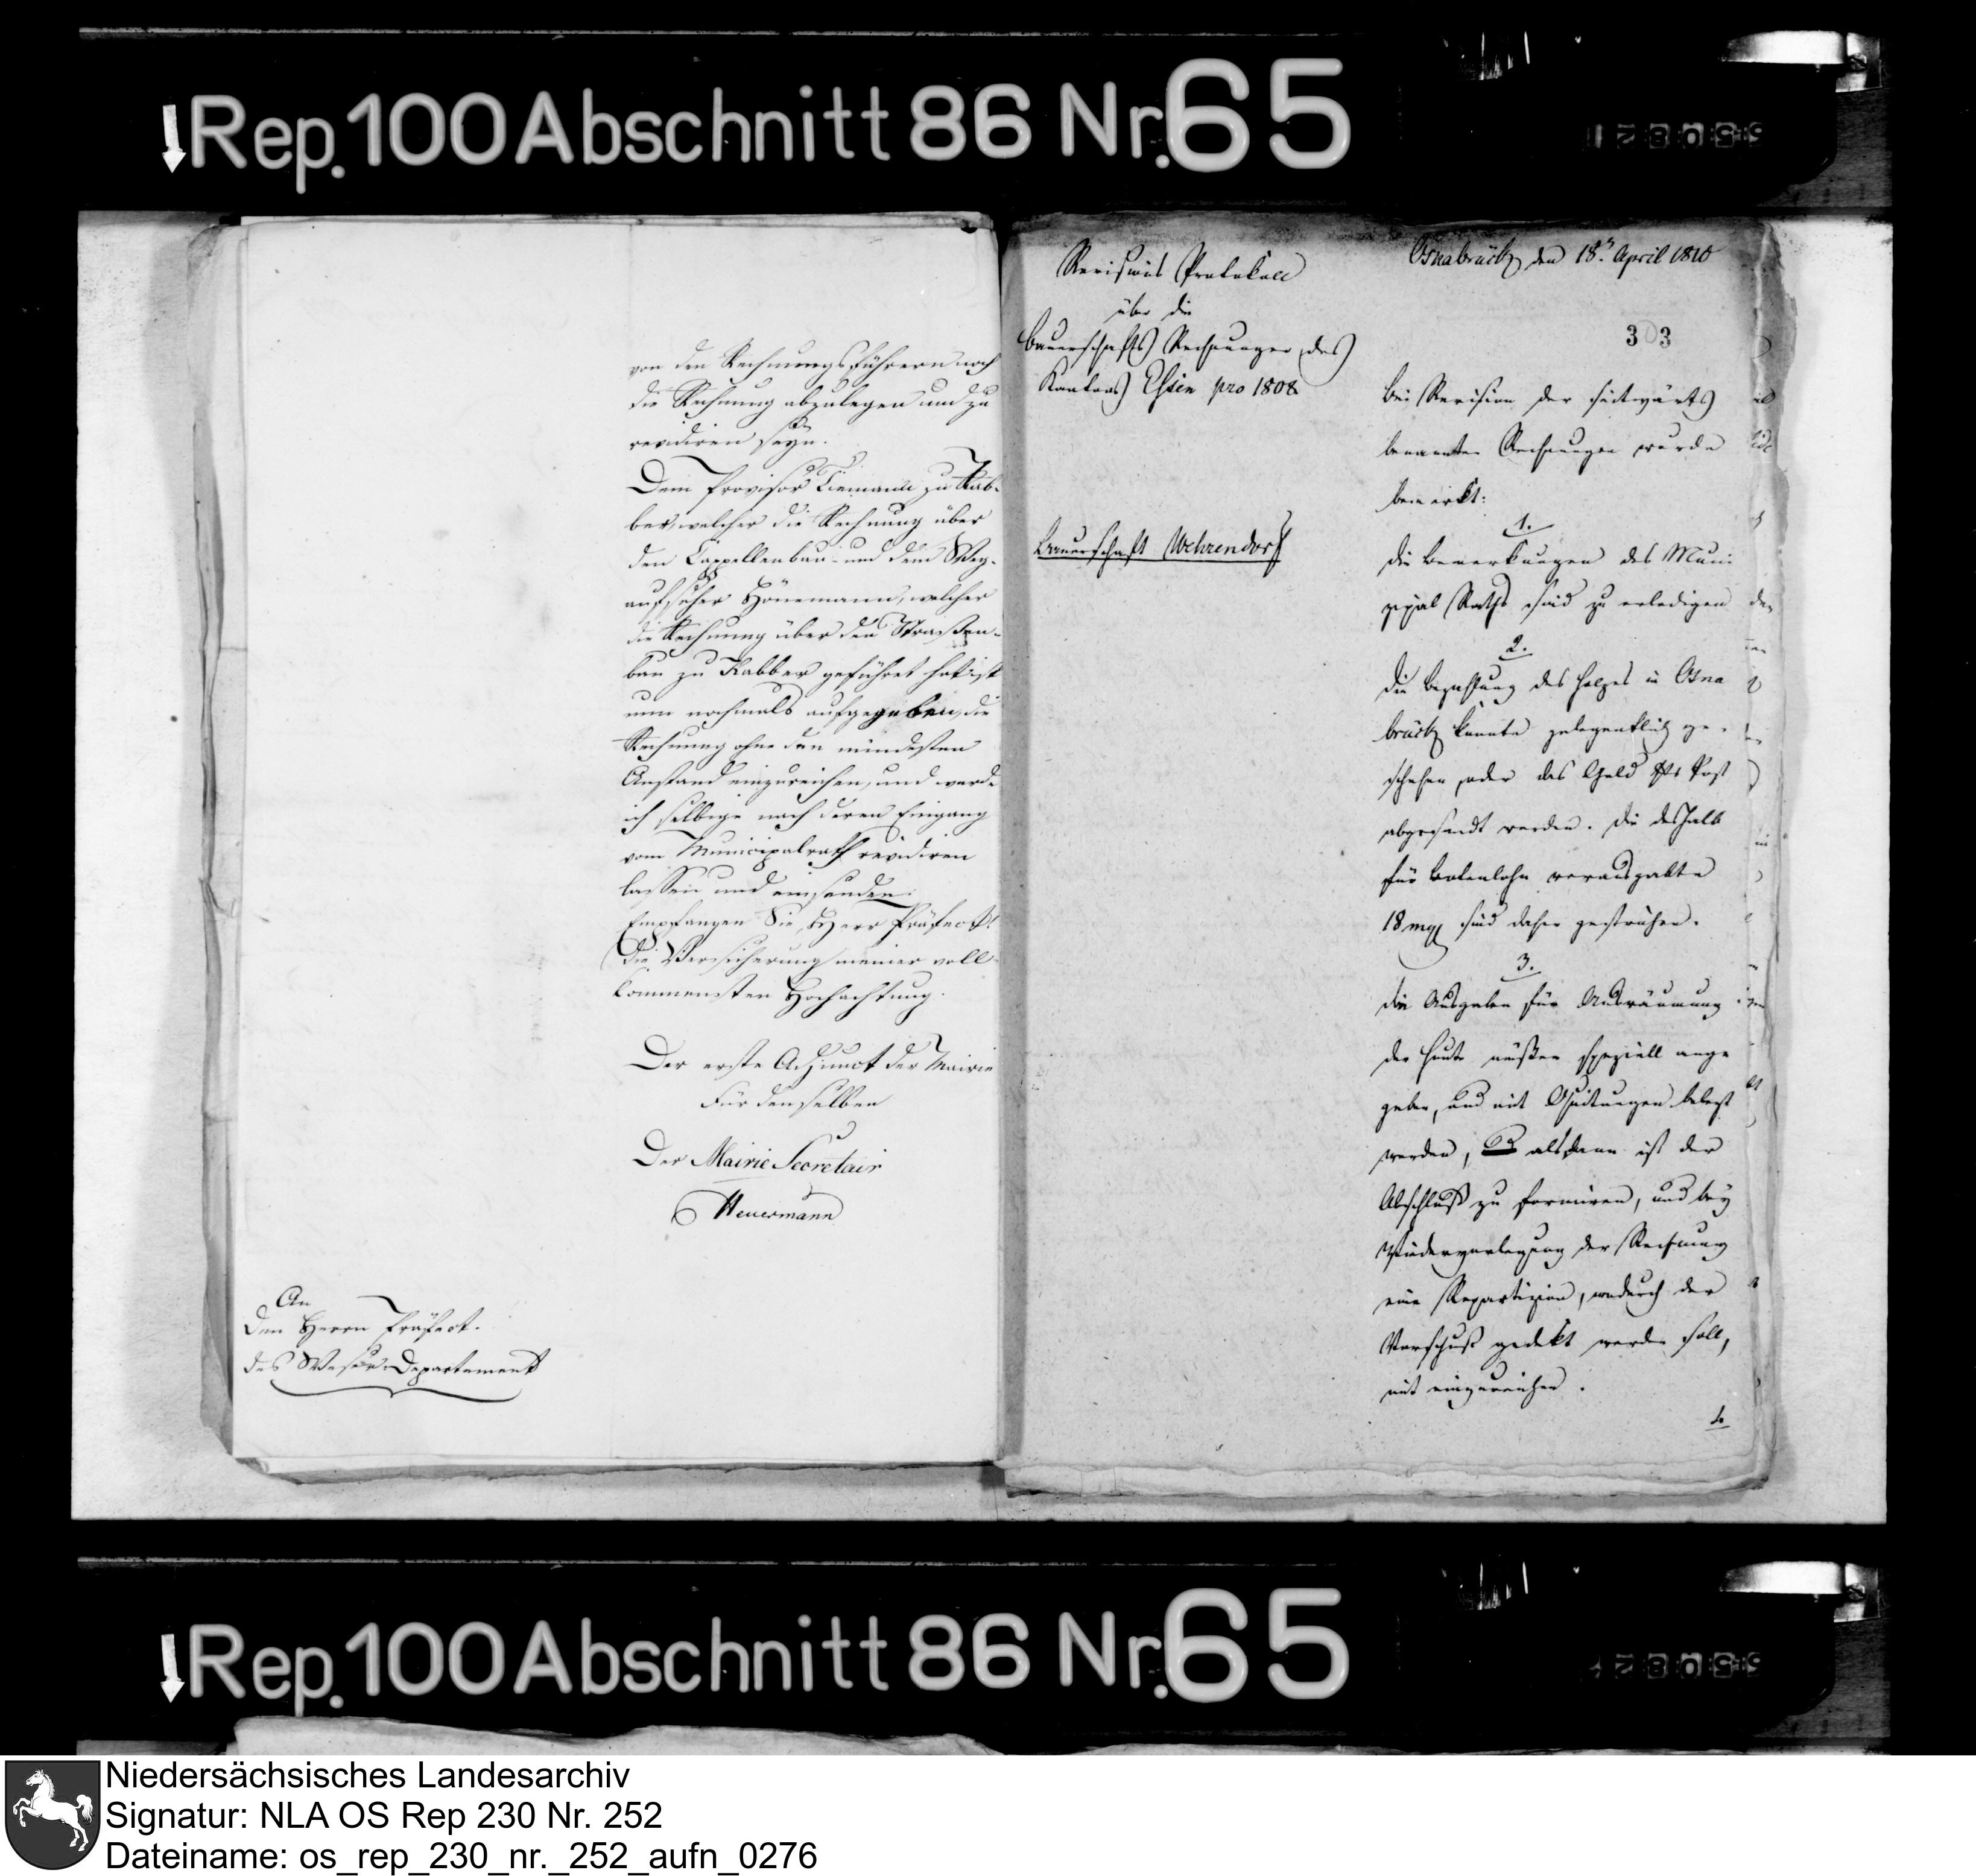 Rep. 100 Abschnitt 86 Nr. 65
von den Rechnungsführern noch
die Rechnung abzulegen und zu
revidiren seyn.
Dem Provisor Tiemann zu Rab-
ber, welcher die Rechnung über
den Cappellenbau- und dem Weg-
aufseher Hönemann, welcher
die Rechnung über den Straßen-
bau zu Rabber geführet hat ist
nun nochmals aufgegeben, die
Rechnung ohne den mindesten
Anstand einzureichen, und werde
ich selbige nach deren Eingang
vom Municipalrath revidiren
lassen und einsenden.
Empfangen Sie, Herr Präfect!
die Versicherung meiner voll-
kommensten Hochachtung.
Der erste Adjunct der Mairie
Für denselben
Der Mairie Secretair
Heuermann
An
den Herrn Präfect.
des Weser-Departement
Revisions Protokoll
über die
Bauerschafts Rechnungen des
Kantons Essen pro 1808
Bauerschaft Wehrendorf
Osnabrück den 18n April 1810
303
Bei Revision der seitwärts
benannten Rechnungen wurde
bemerkt:
1.
die Bemerkungen des Muni-
zipal Raths sind zu erledigen
2.
Die Bezahlung des Holzes in Osna
brück konnte gelegentlich ge-
schehen, oder das Geld Post
abgesandt werden. Die deshalb
für Botenlohn verausgabte
18 mgl sind daher gestrichen.
3.
die Ausgaben für Ausräumung
der Hunte müßen speziell ange
geben, und mit Quitungen belegt
werden, alsdann ist der
Abschluß zu formiren, und bey
Wiedervorlegung der Rechnung
eine Repartizion, wodurch der
Vorschuß gedekt werden soll,
mit einzureichen.
Rep. 100 Abschnitt 86 Nr. 65
Niedersächsisches Landesarchiv
Signatur: NLA OS Rep 230 Nr. 252
Dateiname: os_rep_230_nr._252_aufn_0276